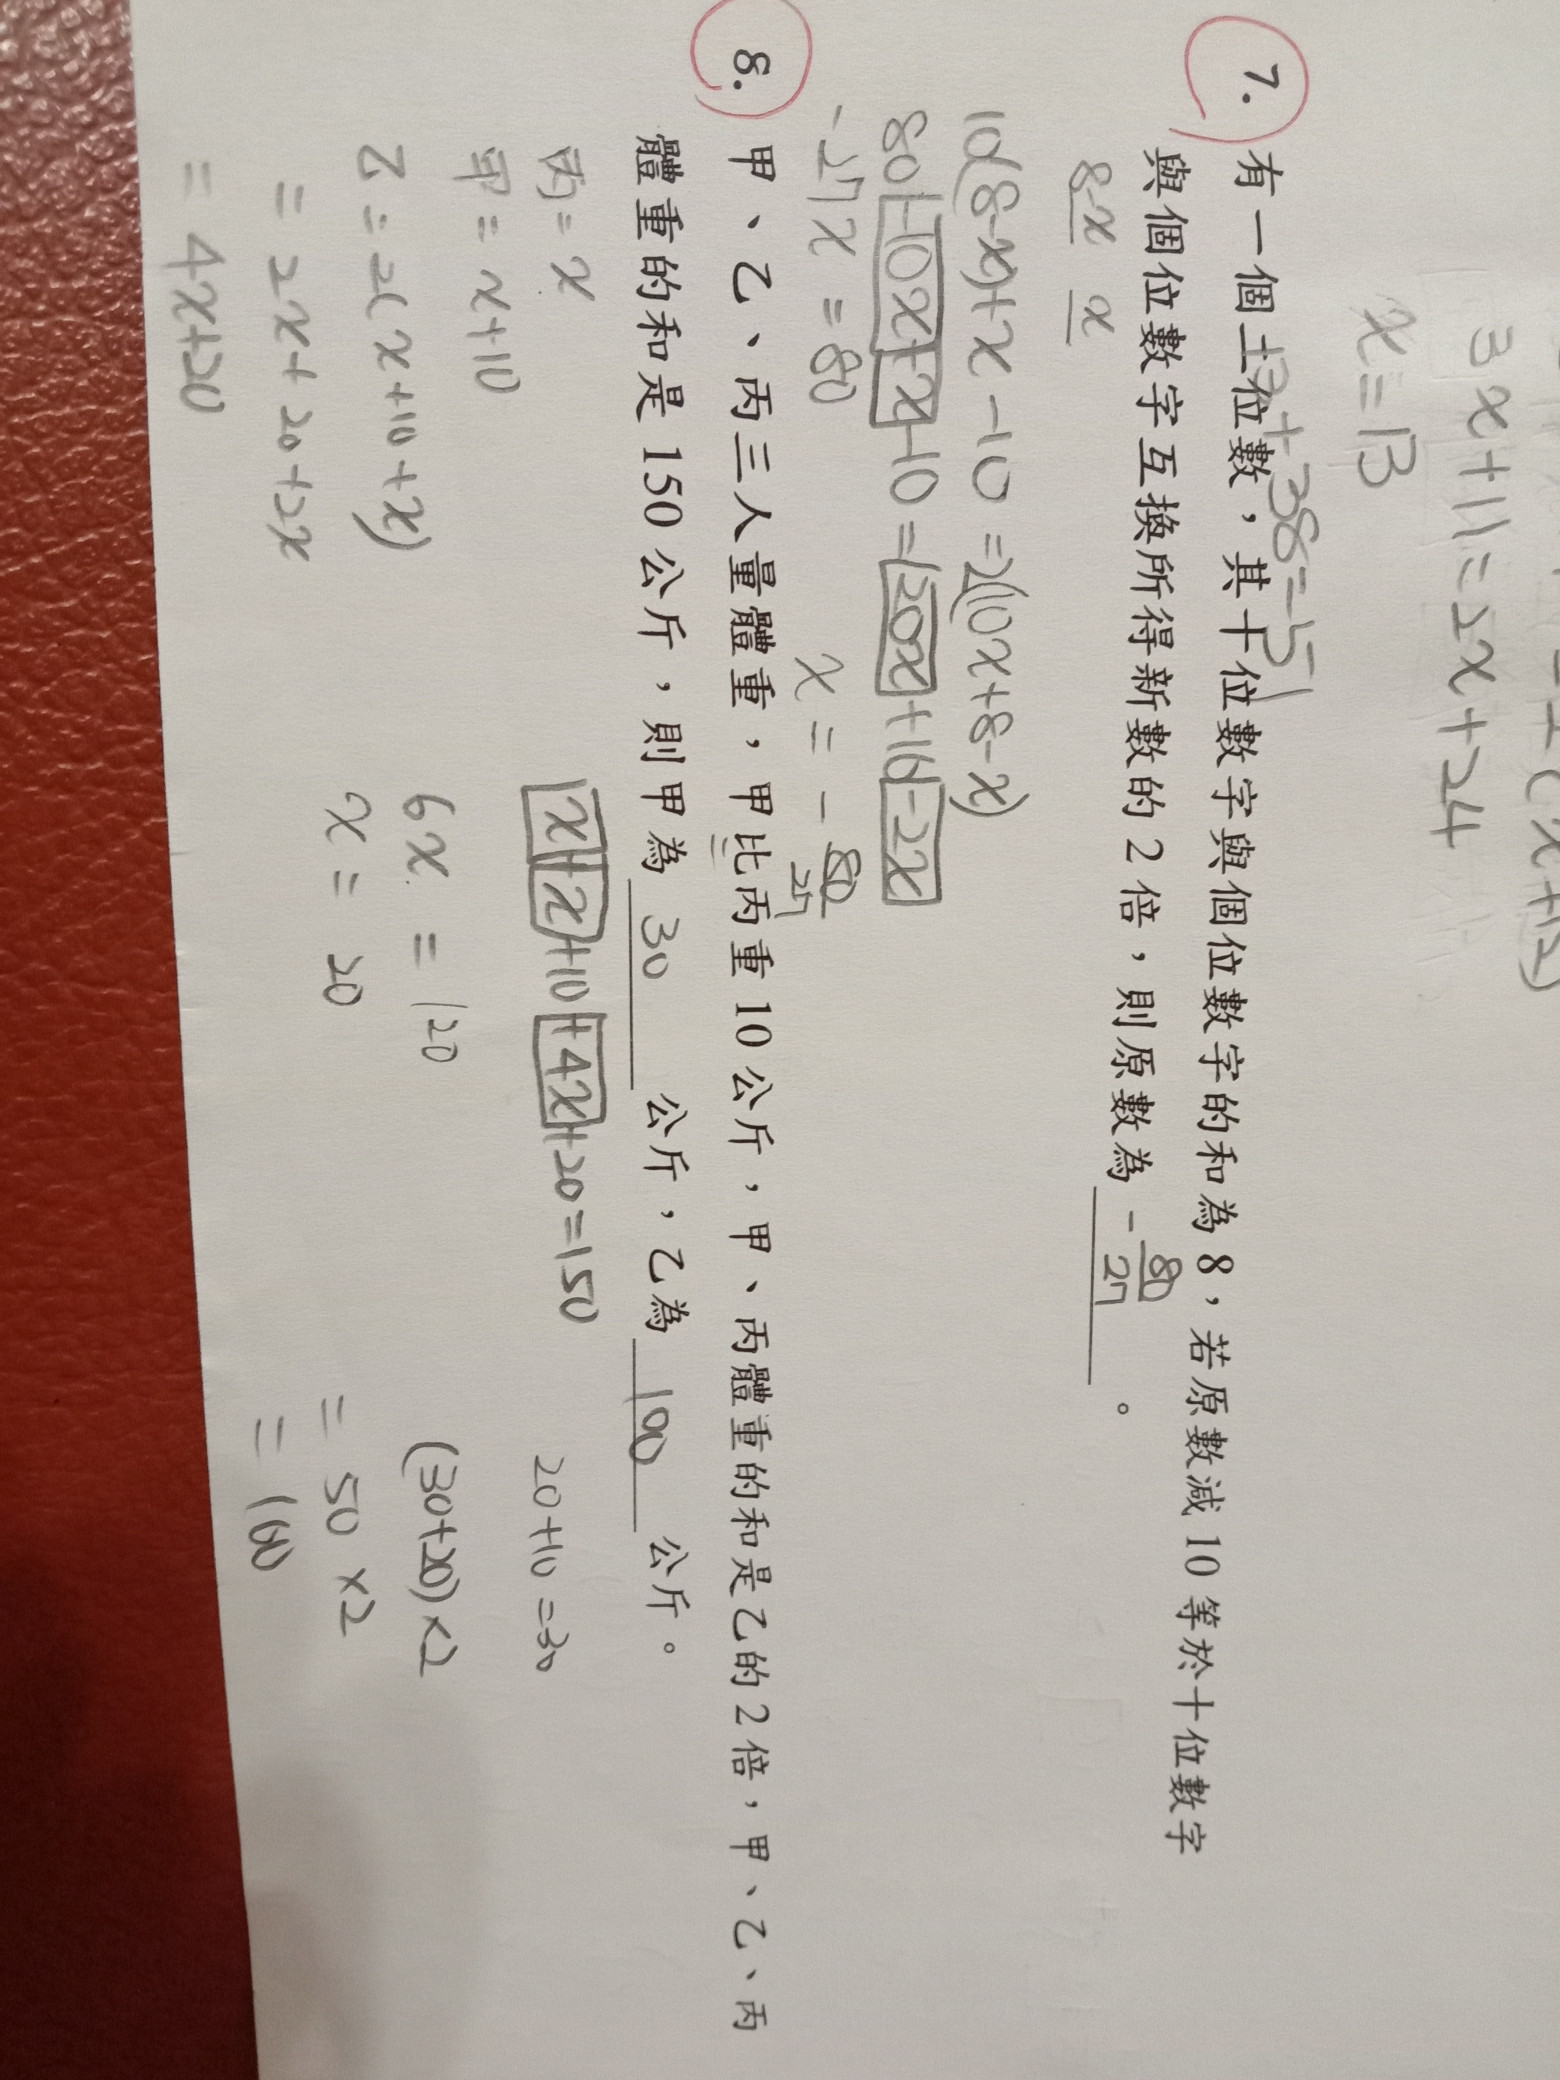 3x+11=2x+24
x=13
13+38=51
7. 有一個二位數，其十位數字與個位數字的和為8，若原數減10等於十位數字
與個位數字互換所得新數的2倍，則原數為 -80/27 。
8-x x
10(8-x)+x-10=2(10x+8-x)
80-10x+x-10=20x+16-2x
-27x=80 x=-80/27
8. 甲、乙、丙三人量體重，甲比丙重10公斤，甲、丙體重的和是乙的2倍，甲、乙、丙
體重的和是150公斤，則甲為 30 公斤，乙為 100 公斤。
丙=x
甲=x+10
乙=2(x+10+x)
=2x+20+2x
=4x+20
x+x+10+4x+20=150
6x=120
x=20
20+10=30
(30+20)×2
=50×2
=100